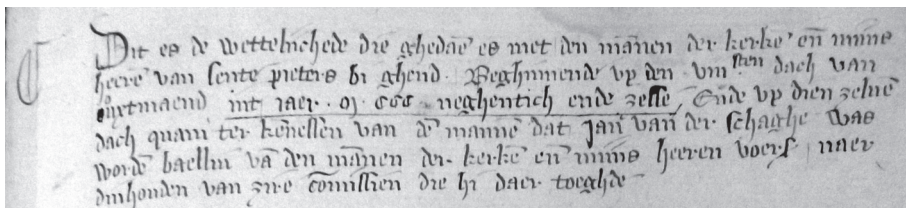 Dit es de wettelichede die ghedaē es met den mānen der kerkē eñ mins
heere van sente pieters bi ghend Beghinnende vp den viiisten dach van
int iaer · m · ccc · neghentich ende zesse, Ende vp dien zelnē
dach quam ter kēnessen van dē mannē dat Jan van der schaghe was
wordē baelliu vā den mānen der kerkē eñ mins heeren voers naer
dinhouden van zire cōmissien die hi daer toeghde